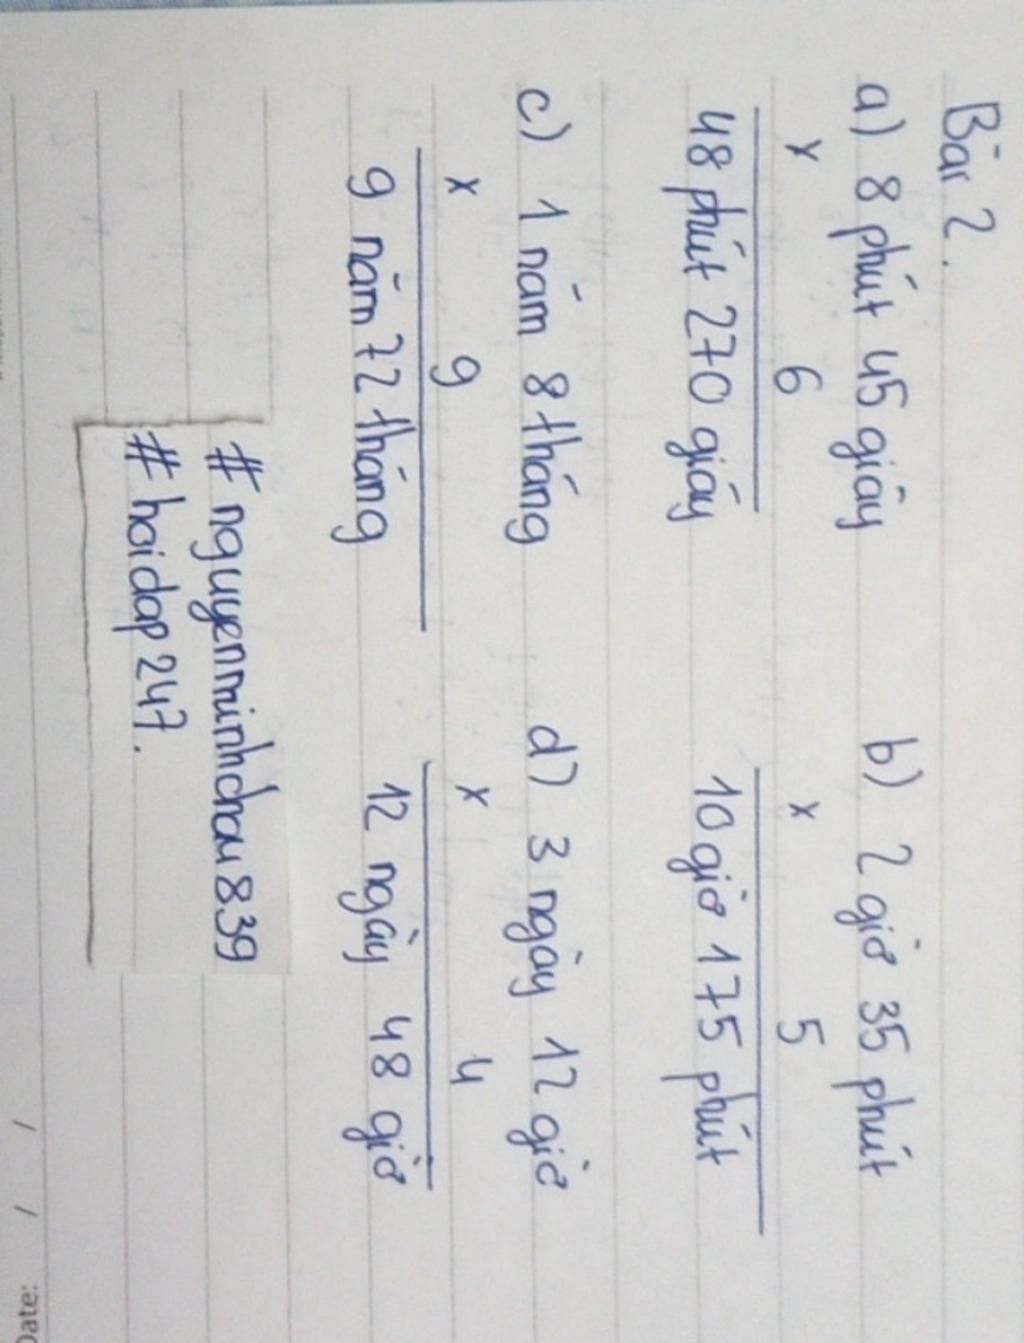 Bài 2.
a) 8 phút 45 giây
x 6
48 phút 270 giây
b) 2 giờ 35 phút
x 5
10 giờ 175 phút
c) 1 năm 8 tháng
x 9
9 năm 72 tháng
d) 3 ngày 12 giờ
x 4
12 ngày 48 giờ
# nguyenminhchau839
# hoidap247.
Date: / /